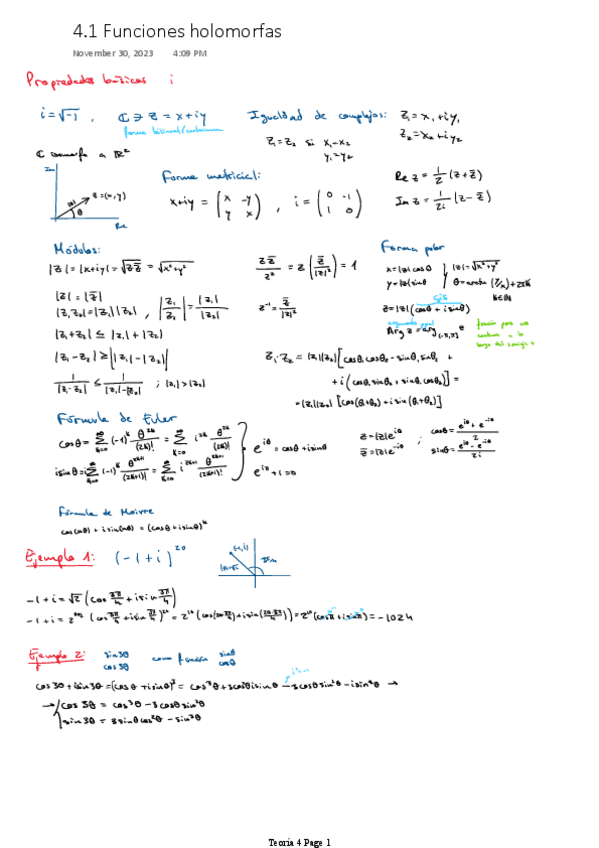 4.1 Funciones holomorfas
November 30, 2023 4:09 PM
Propiedades básicas i
i = √-1 , ℂ ∋ z = x+iy
forma binomial/cartesiana
Igualdad de complejos: z₁ = x₁+iy₁
z₂ = x₂+iy₂
z₁ = z₂ si x₁ = x₂
y₁ = y₂
ℂ isomorfo a ℝ²
Im
z = (x,y)
|z|
θ
Re
Forma matricial:
x+iy = (x -y y x) , i = (0 -1 1 0)
Re z = 1/2 (z + z̄)
Im z = 1/2i (z - z̄)
Módulos:
|z| = |x+iy| = √zz̄ = √x²+y²
|z| = |z̄|
|z₁z₂| = |z₁||z₂| , |z₁/z₂| = |z₁|/|z₂|
|z₁+z₂| ≤ |z₁| + |z₂|
|z₁ - z₂| ≥ ||z₁| - |z₂||
1/|z₁-z₂| ≤ 1/||z₁|-|z₂|| ; |z₁| > |z₂|
= z (z̄/|z|²) = 1
z⁻¹ = z̄/|z|²
Forma polar
x = |z| cosθ
y = |z| sinθ
|z| = √x²+y²
θ = arctan (y/x) + 2πk
k∈ℕ
cis
z = |z| (cosθ + i sinθ)
argumento ppal
Arg z = arg ]-π,π] θ
z₁·z₂ = |z₁||z₂| [cosθ₁cosθ₂ - sinθ₁sinθ₂ +
+ i (cosθ₁sinθ₂ + sinθ₁cosθ₂)] =
= |z₁||z₂| [cos(θ₁+θ₂) + i sin(θ₁+θ₂)]
Fórmula de Euler
cosθ = ∞Σk=0 (-1)ᵏ θ²ᵏ/(2k)! = ∞Σk=0 i²ᵏ θ²ᵏ/(2k)!
i sinθ = i ∞Σk=0 (-1)ᵏ θ²ᵏ⁺¹/(2k+1)! = ∞Σk=0 i²ᵏ⁺¹ θ²ᵏ⁺¹/(2k+1)!
e^iθ = cosθ + i sinθ
e^iπ + 1 = 0
z = |z|e^iθ
z̄ = |z|e^-iθ
;
cosθ = e^iθ + e^-iθ / 2
sinθ = e^iθ - e^-iθ / 2i
Fórmula de Moivre
cos(nθ) + i sin(nθ) = (cosθ + i sinθ)ⁿ
Ejemplo 1: (-1+i)²⁰
(-1,i)
-1+i = √2 (cos 3π/4 + i sin 3π/4)
-1+i = (cos 3π/4 + i sin 3π/4)²⁰ = 2¹⁰ (cos(20·3π/4) + i sin(20·3π/4)) = 2¹⁰ (cosπ + i sinπ) = -1024
Ejemplo 2: sin3θ
cos3θ
como función sinθ
cosθ
cos3θ + i sin3θ = (cosθ + i sinθ)³ = cos³θ + 3cos²θ i sinθ - 3cosθ sin²θ - i sin³θ →
→ cos 3θ = cos³θ - 3cosθ sin²θ
sin3θ = 3 sinθ cos²θ - sin³θ
Teoría 4 Page 1